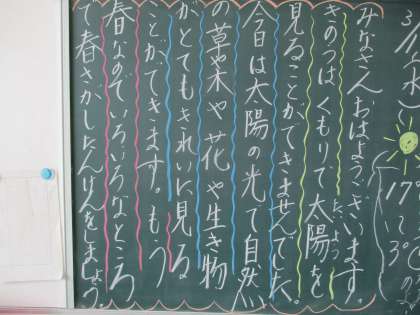 みなさんおはようございます。
きのうはくもりで太陽を
たいよう
見ることができませんでした。
今日は太陽の光で自然
の草や木や花や生き物
がとてもきれいに見る
ことができます。もう
春なのでいろいろなところ
で春さがしたんけんをしましょう。